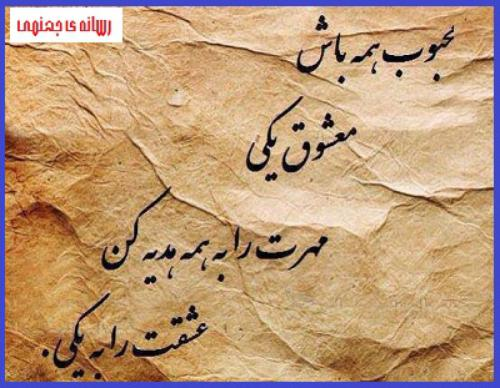 رسانه‌ی جهنمی
محبوب همه باش
معشوق یکی
مهرت را به همه هدیه کن
عشقت را به یکی.